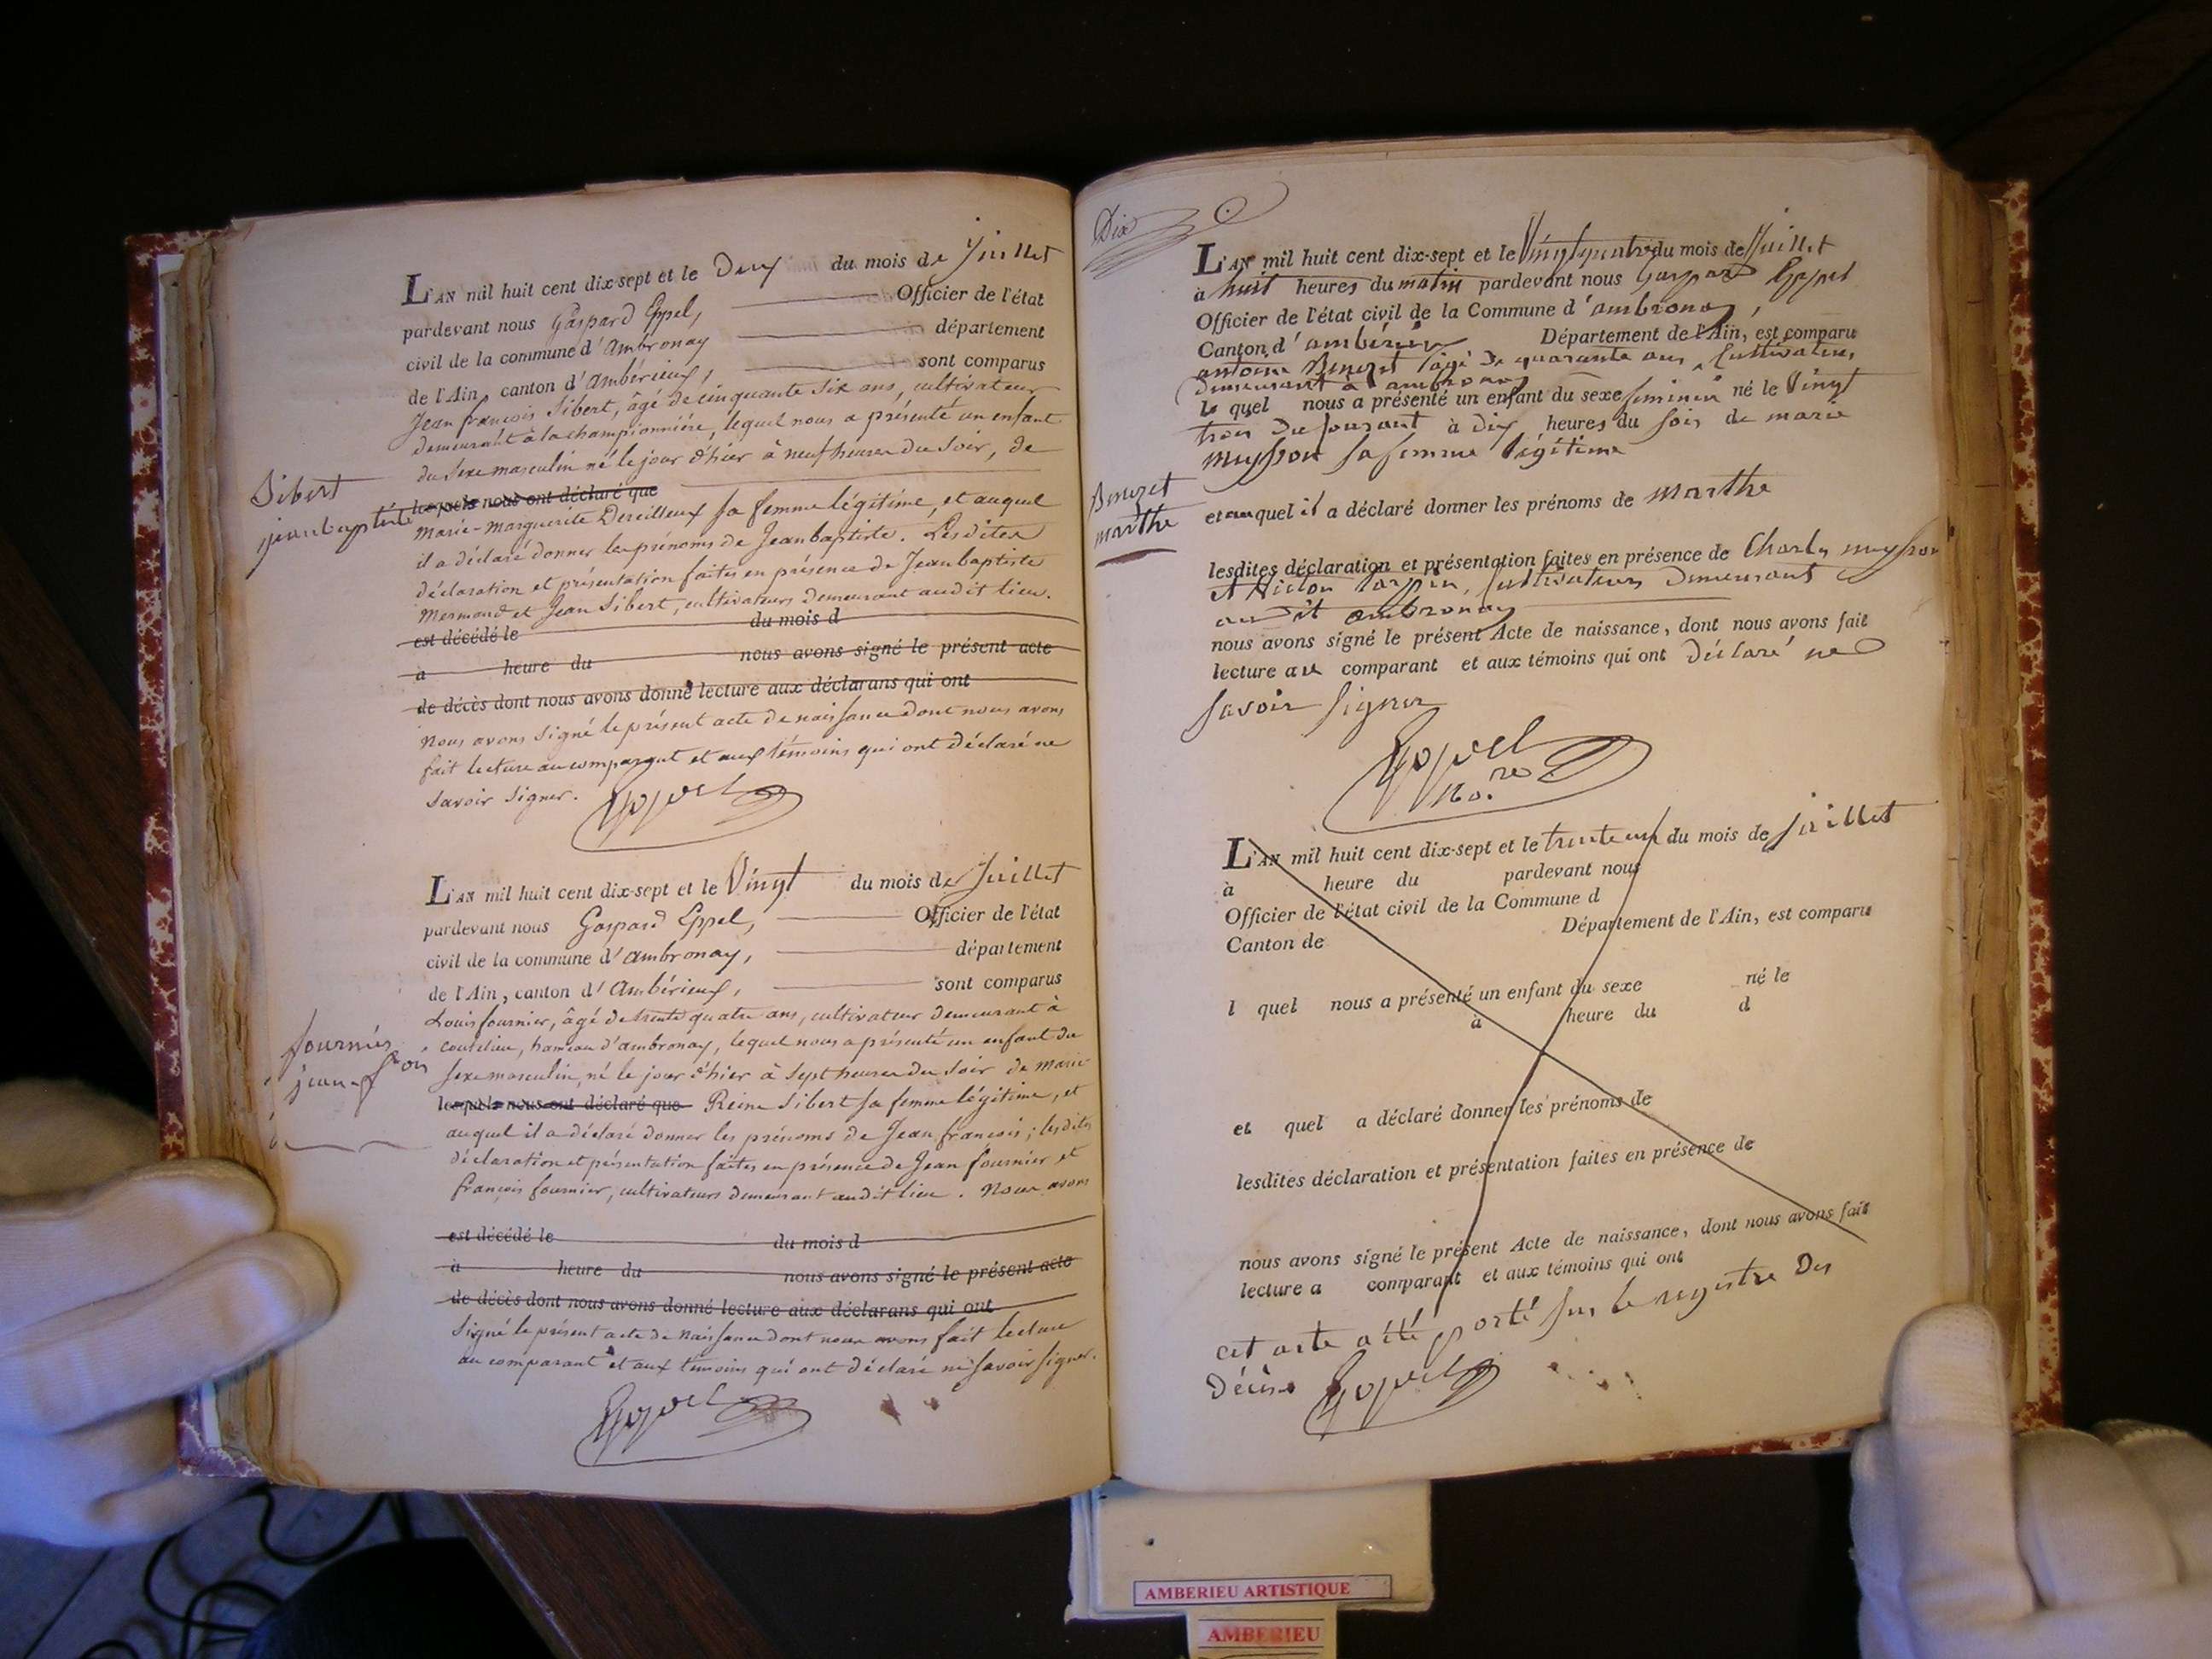 L'AN mil huit cent dix-sept et le Deux du mois de Juillet
pardevant nous Gaspard Eppel, Officier de l'état
civil de la commune d'Ambronay département
de l'Ain, canton d'Ambérieux, sont comparus
Jean françois Sibert, âgé de cinquante six ans, cultivateur
demeurant à la championnière, lequel nous a présenté un enfant
du sexe masculin né le jour d'hier à neuf heures du soir, de
Sibert
jean baptiste
lesquels nous ont déclaré que
Marie-Marguerite Dereilleux sa femme légitime, et auquel
il a déclaré donner les prénoms de Jean baptiste. Lesdites
déclaration et présentation faites en présence de Jean baptiste
Mermand et Jean Sibert, cultivateurs demeurant audit lieu.
est décédé le du mois d
à heure du nous avons signé le présent acte
de décès dont nous avons donné lecture aux déclarans qui ont
Nous avons signé le présent acte de naissance dont nous avons
fait lecture au comparant et aux témoins qui ont déclaré ne
savoir signer. Eppel
L'AN mil huit cent dix-sept et le Vingt du mois de Juillet
pardevant nous Gaspard Eppel, Officier de l'état
civil de la commune d'Ambronay, département
de l'Ain, canton d'Ambérieux, sont comparus
Louis fournier, âgé de trente quatre ans, cultivateur demeurant à
coutelieu, hameau d'ambronay, lequel nous a présenté un enfant du
fournier
jean-fçois
sexe masculin, né le jour d'hier à sept heures du soir de marie
lesquels nous ont déclaré que Reine Sibert sa femme légitime, et
auquel il a déclaré donner les prénoms de Jean françois; lesdites
déclaration et présentation faites en présence de Jean fournier et
françois fournier, cultivateurs demeurant audit lieu. Nous avons
est décédé le du mois d
à heure du nous avons signé le présent acte
de décès dont nous avons donné lecture aux déclarans qui ont
Signé le présent acte de naissance dont nous avons fait lecture
au comparant et aux témoins qui ont déclaré ne savoir signer.
Eppel
Dix
L'AN mil huit cent dix-sept et le Vingt quatre du mois de Juillet
à huit heures du matin pardevant nous Gaspard Eppel
Officier de l'état civil de la Commune d'ambronay,
Canton d'ambérieux Département de l'Ain, est comparu
antoine Benezet âgé de quarante ans, Cultivateur,
demeurant à ambronay
le quel nous a présenté un enfant du sexe feminin né le Vingt
trois du courant à dix heures du soir de marie
muysson sa femme légitime
Benezet
marthe
et auquel il a déclaré donner les prénoms de marthe
lesdites déclaration et présentation faites en présence de Charles muysson
et Tarpin, Cultivateurs demeurant
au dit ambronay
nous avons signé le présent Acte de naissance, dont nous avons fait
lecture au comparant et aux témoins qui ont déclaré ne
savoir signer
Eppel
L'AN mil huit cent dix-sept et le trente un du mois de juillet
à heure du pardevant nous
Officier de l'état civil de la Commune d
Canton de Département de l'Ain, est comparu
l quel nous a présenté un enfant du sexe né le
à heure du d
et quel a déclaré donner les prénoms de
lesdites déclaration et présentation faites en présence de
nous avons signé le présent Acte de naissance, dont nous avons fait
lecture a comparant et aux témoins qui ont
cet acte a été porté sur le registre des
Décès Eppel
AMBERIEU ARTISTIQUE
AMBERIEU